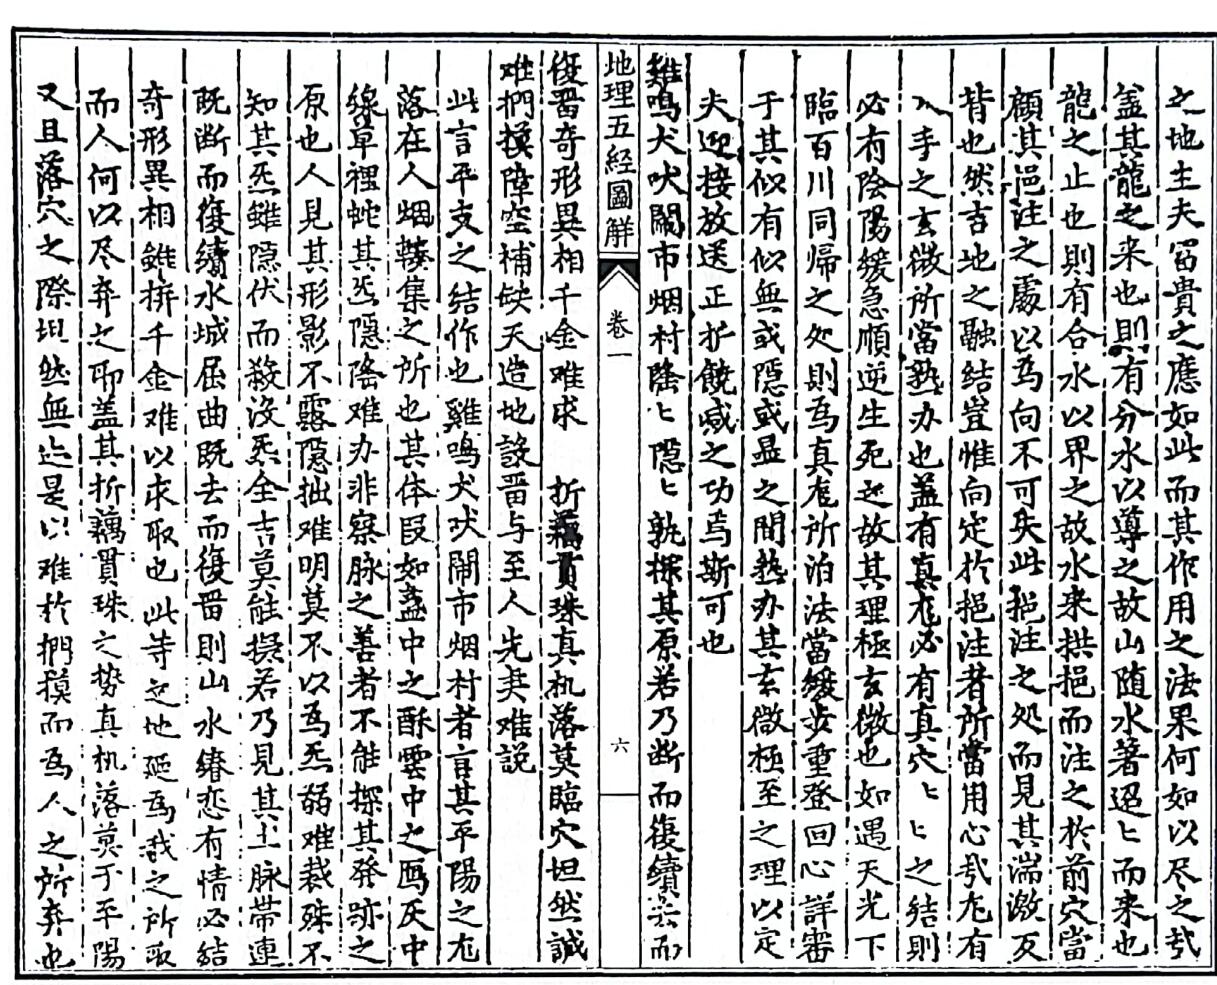 之地生夫畱貴之應如此而其作用之法果何如以尽之㢤
盖其龍之来也則有分水以導之故山随水著迢〻而来也
龍之止也則有合水以界之故水来拱挹而注之於前穴當
顧其挹注之處以為向不可失此挹注之处而見其湍激反
背也然吉地之融結豈惟向定於挹注者所當用心㢤尨有
入手之玄微所當熟办也盖有真尨必有真穴〻〻之结則
必有陰陽緩急順逆生死之故其理極玄微也如遇天光下
臨百川同歸之处則為真尨所泊法當緩步重登回心詳審
于其似有似無或隱或显之間熟办其玄微極至之理以定
夫迎接放送正扩饒减之功焉斯可也
雞鳴犬吠鬧市烟村隆〻隱〻孰探其原若乃断而復續去而
地理五經圖觧
卷一
六
復畱奇形異相千金难求　折藕貫珠真机落莫臨穴坦然誠
难捫摸障空補缺天造地設畱与至人先美难説
此言平支之结作也雞鳴犬吠鬧市烟村者言其平陽之尨
落在人烟輳集之所也其体段如盏中之酥雲中之鴈灰中
線草裡蛇其炁隱隆难办非察脉之善者不能探其發跡之
原也人見其形影不露隐拙难明莫不以為炁弱难裁殊不
知其炁雖隐伏而殺没炁全吉莫能擬若乃見其土脉带連
既断而復續水城屈曲既去而復畱則山水眷恋有情必結
奇形異相雖拚千金难以求取也此等之地延為我之所取
而人何以尽弃之耶盖其折藕貫珠之勢真机落莫于平陽
又且落穴之際坦然無迹是以难於捫摸而為人之所弃也